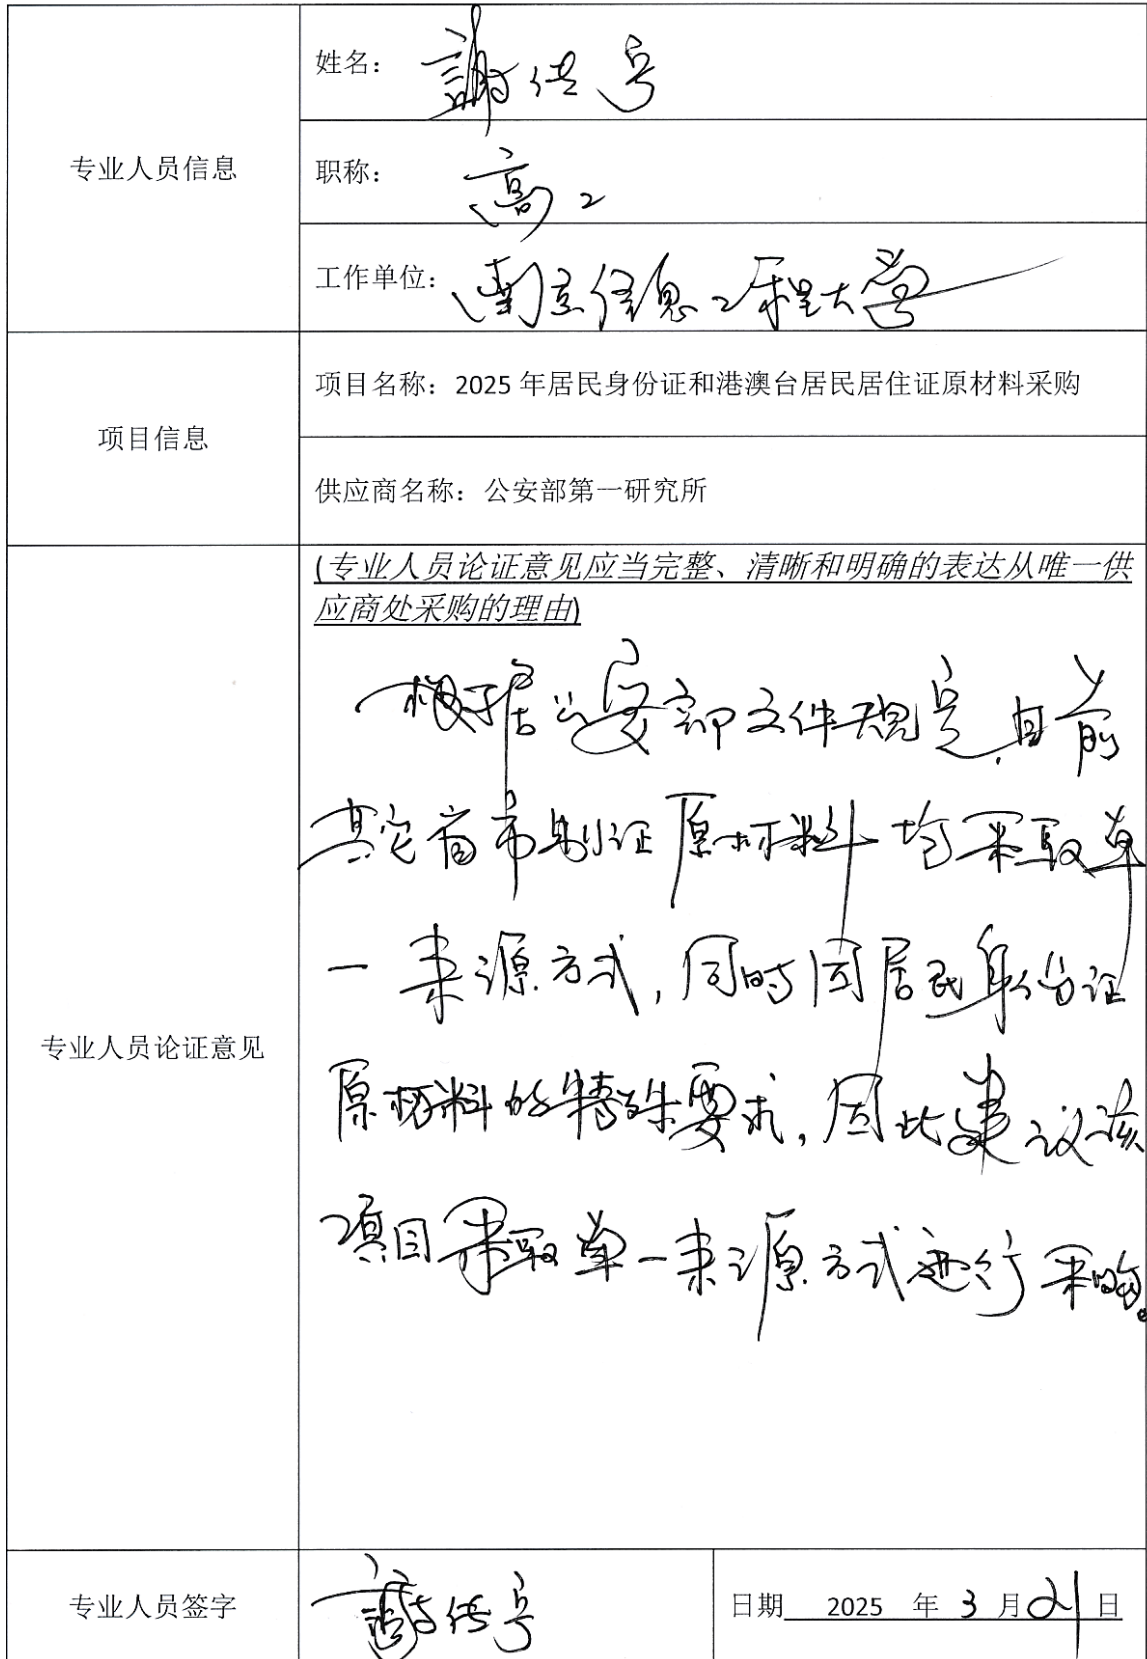 专业人员信息
姓名：謝传
职称：高工
工作单位：南京信息工程大学
项目信息
项目名称：2025 年居民身份证和港澳台居民居住证原材料采购
供应商名称：公安部第一研究所
专业人员论证意见
(专业人员论证意见应当完整、清晰和明确的表达从唯一供
应商处采购的理由)
根据公安部文件规定，目前
其它省市制证原材料均采取单
一来源方式，同时因居民身份证
原材料的特殊要求，因此建议该
项目采取单一来源方式进行采购。
专业人员签字
謝传
日期 2025 年 3 月 21 日